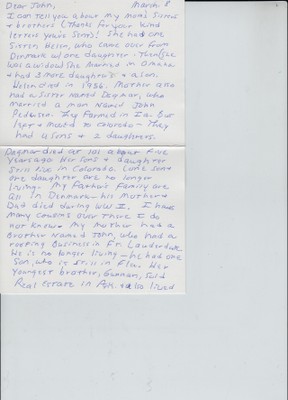 Dear John, March 8
I can tell you about my mom's sisters
& brothers (Thanks for your kind
letters you've sent)! She had one
sister Helen, who came over from
Denmark w/ one daughter - Then (she
was a widow) she married in Omaha
& had 3 more daughters & a son.
Helen died in 1956. Mother also
had a sister named Dagmar, who
married a man named John
Pedersen. They farmed in Ia. but
left & moved to Colorado - They
had 4 sons & 2 daughters.
Dagmar died at 101 about five
years ago. Her sons & daughter
still live in Colorado (one son &
one daughter are no longer
living. My father's family are
all in Denmark - his mother &
Dad died during WW I. I have
many cousins over there I do
not know - My mother had a
brother named John, who had a
roofing business in Ft. Lauderdale
He is no longer living - he had one
son, who is still in Fla. Her
youngest brother, Gunnar, sold
Real estate in Ark. & also lived